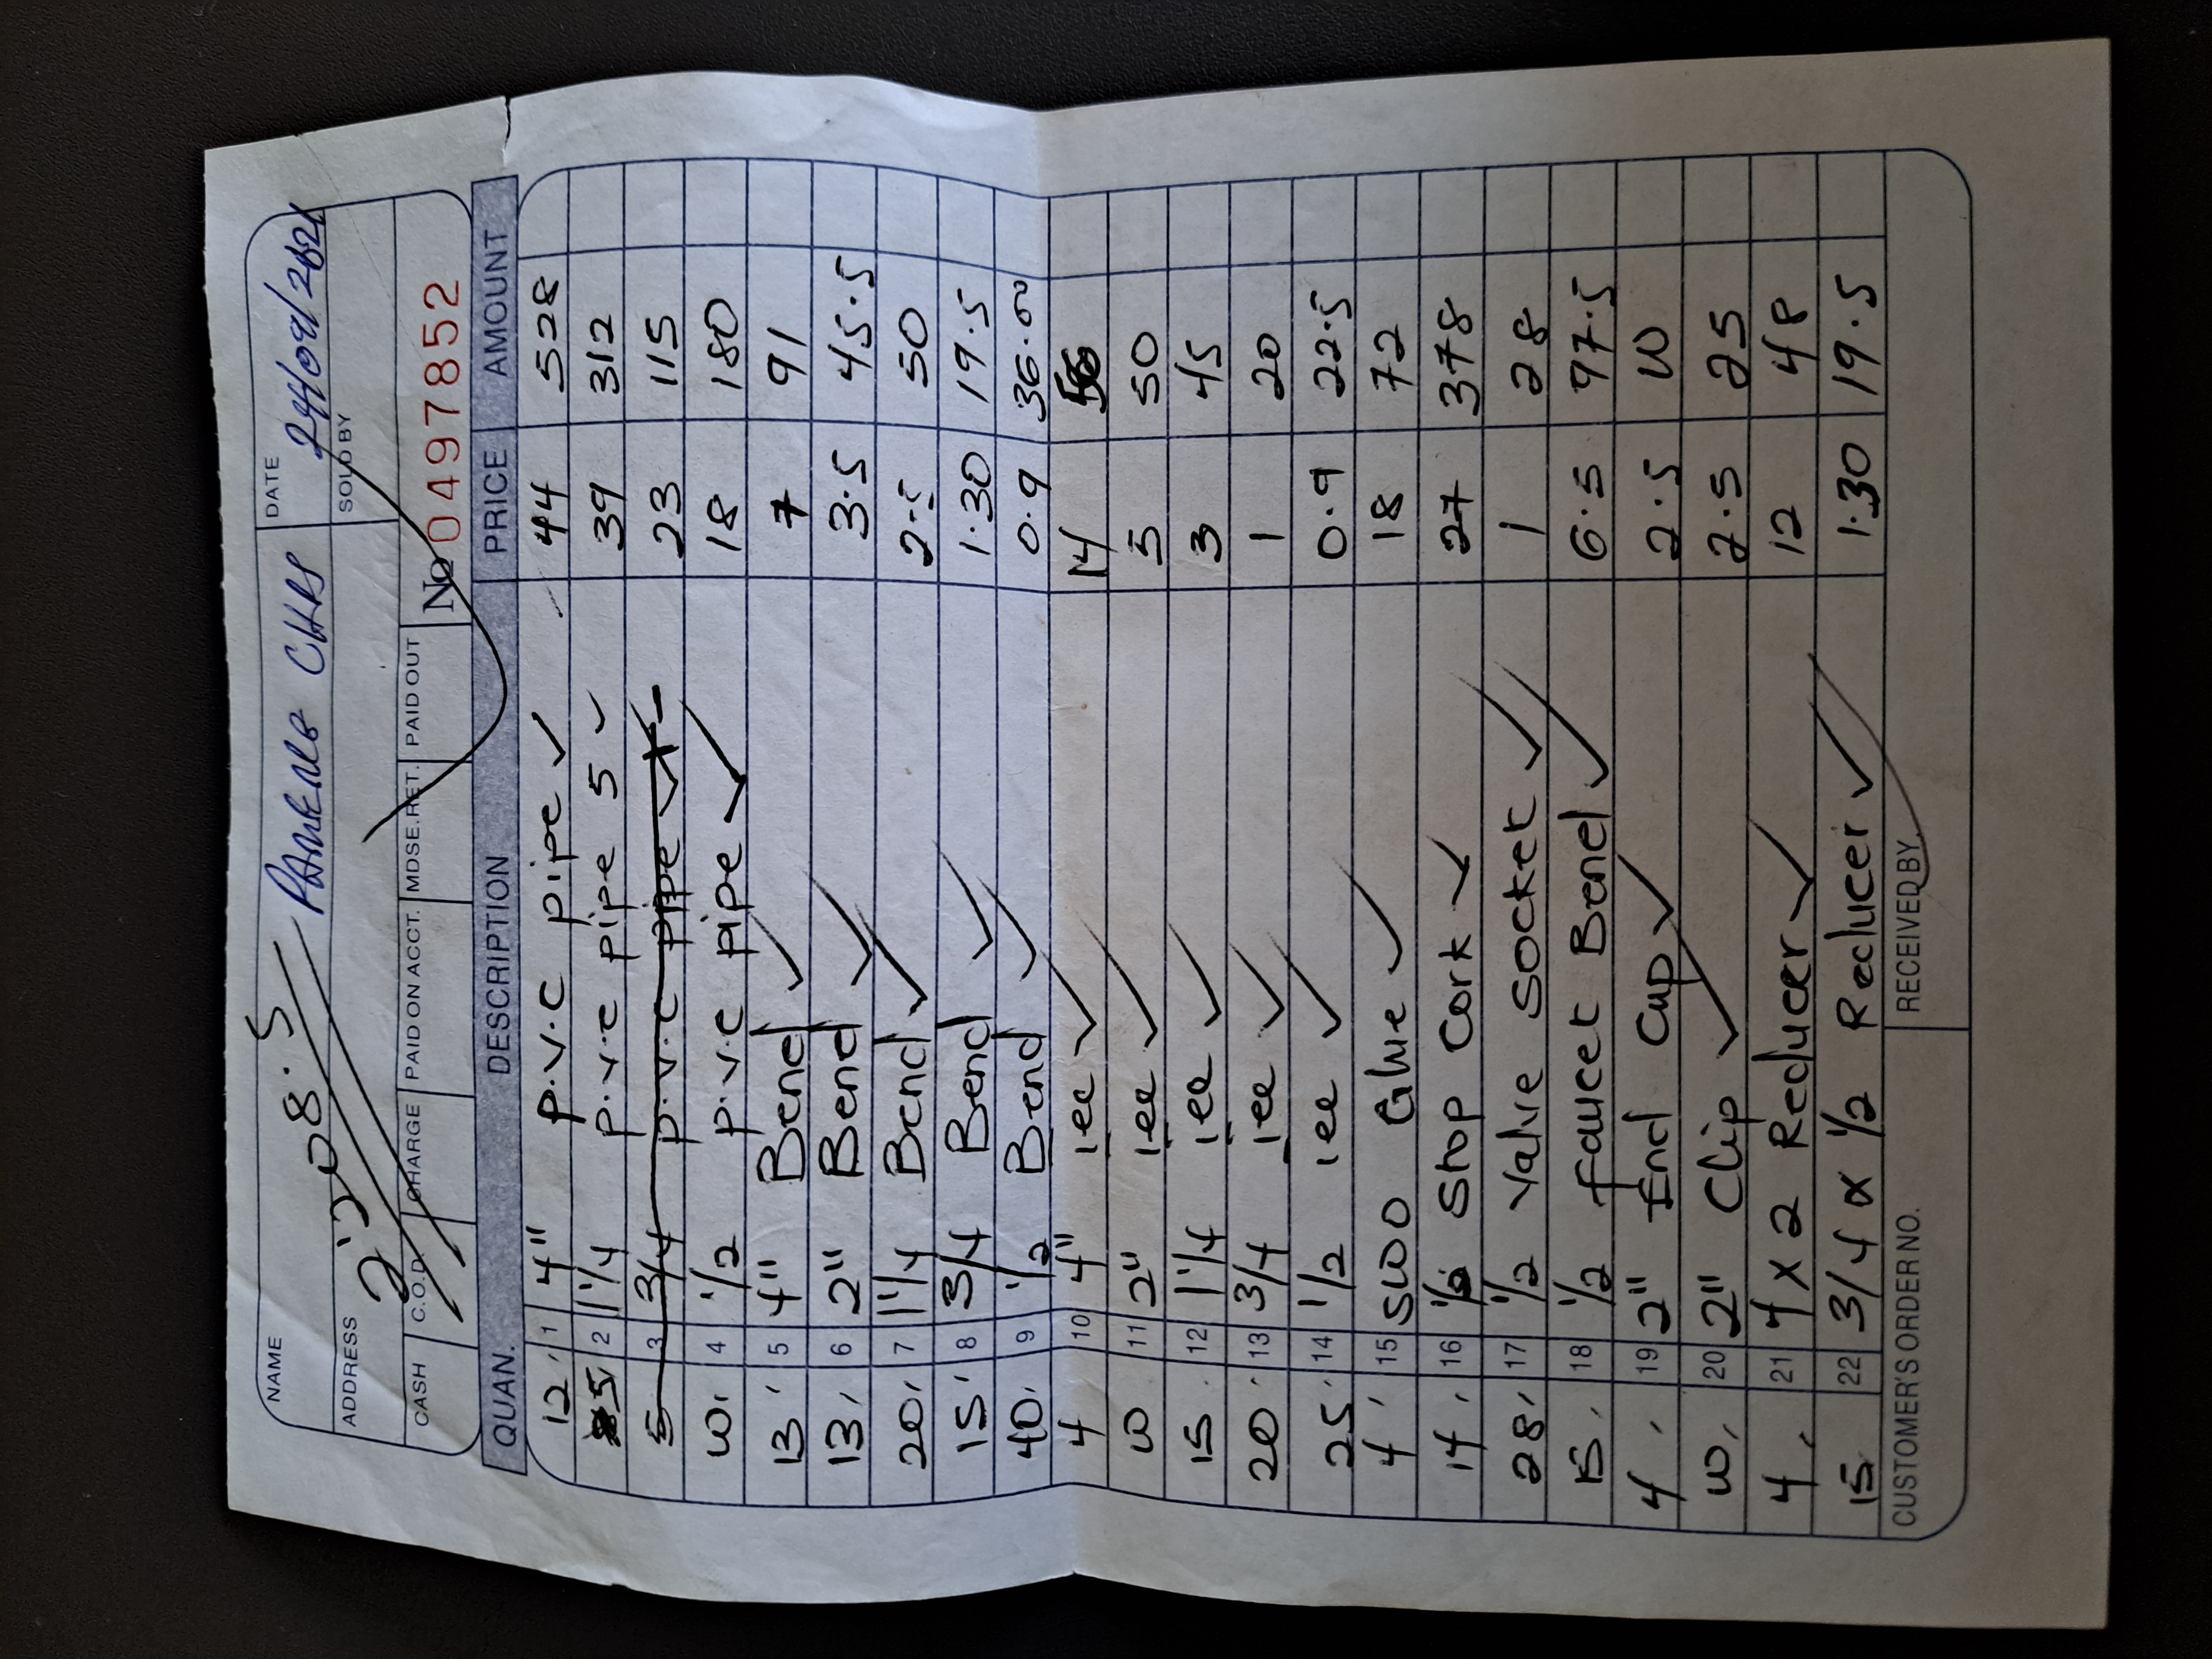 NAME DATE
24/09/2021
ADDRESS SOLD BY
2,208.5
CASH C.O.D. CHARGE PAID ON ACCT. MDSE.RET. PAID OUT
No 0497852
QUAN. DESCRIPTION PRICE AMOUNT
12, 1 4" p.v.c pipe ✓ 44 528
5 2 1 1/4 p.v.c pipe 5 ✓ 39 312
5 3 3/4 p.v.c pipe ✓ 23 115
10, 4 1/2 p.v.c pipe ✓ 18 180
13, 5 4" Bend ✓ 7 91
13, 6 2" Bend ✓ 3.5 45.5
20, 7 1 1/4 Bend ✓ 2.5 50
15, 8 3/4 Bend ✓ 1.30 19.5
40, 9 1/2 Bend ✓ 0.9 36.00
4 10 4" Tee ✓ 14 56
10 11 2" Tee ✓ 5 50
15 12 1 1/4 Tee ✓ 3 45
20, 13 3/4 Tee ✓ 1 20
25, 14 1/2 Tee ✓ 0.9 22.5
4, 15 500 Glue ✓ 18 72
14, 16 1/2 Stop Cork ✓ 27 378
28, 17 1/2 Valve Socket ✓ 1 28
15, 18 1/2 faucet Bend ✓ 6.5 97.5
4, 19 2" End Cup ✓ 2.5 10
10, 20 2" Clip ✓ 2.5 25
4, 21 4 x 2 Reducer ✓ 12 48
15 22 3/4 x 1/2 Reducer ✓ 1.30 19.5
CUSTOMER'S ORDER NO. RECEIVED BY